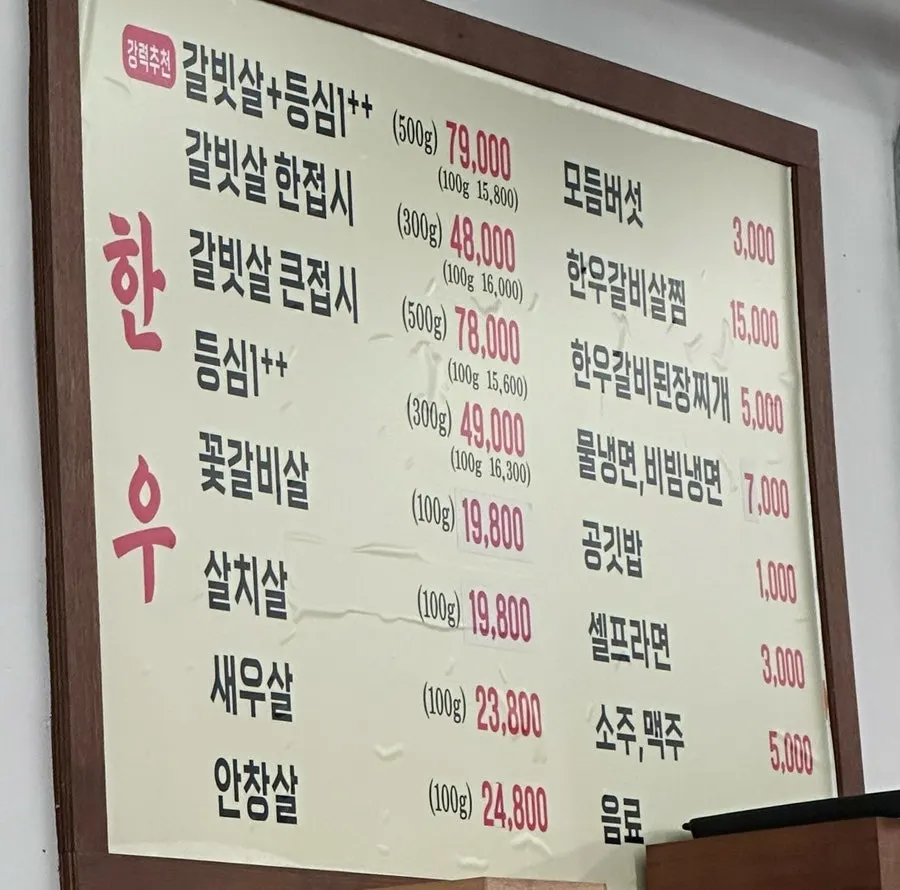 한우
강력추천 갈빗살+등심1++ (500g) 79,000
(100g 15,800)
갈빗살 한접시 (300g) 48,000
(100g 16,000)
갈빗살 큰접시 (500g) 78,000
(100g 15,600)
등심1++ (300g) 49,000
(100g 16,300)
꽃갈비살 (100g) 19,800
살치살 (100g) 19,800
새우살 (100g) 23,800
안창살 (100g) 24,800
모듬버섯 3,000
한우갈비살찜 15,000
한우갈비된장찌개 5,000
물냉면,비빔냉면 7,000
공깃밥 1,000
셀프라면 3,000
소주,맥주 5,000
음료